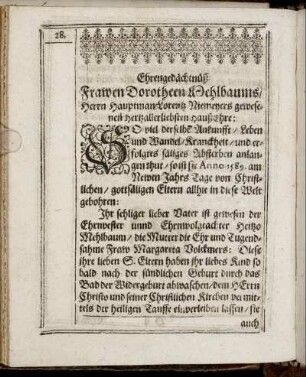 28.
Ehrengedächtnüß
Frawen Dorotheen Mehlbaums/
Herrn Hauptman Lorentz Niemeyers gewese-
nen Hertzallerliebsten Hauß Ehre:
SO viel derselben Ankunfft / Leben
und Wandel / Kranckheit / und er-
folgtes säliges Absterben anlan-
gen thut / so ist sie Anno 1589. am
Newen Jahrs Tage von Christ-
lichen / gottsäligen Eltern allhie in diese Welt
gebohren:
Ihr sehliger lieber Vater ist gewesen der
Ehrnvester unnd Ehrnwolgeachter Heitzo
Mehlbaum / die Mutter die Ehr und Tugend-
sahme Fraw Margareta Volckmers: Diese
ihre lieben S. Eltern haben ihr liebes Kind so
bald nach der sündlichen Geburt durch das
Bad der Widergeburt abwaschen / dem HErrn
Christo und seiner Christlichen Kirchen vermit-
tels der heiligen Tauffe einverleiben lassen / sie
auch